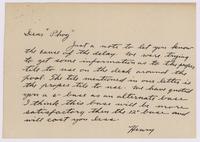 Dear "Phog"
Just a note to let you know
the cause of the delay. We were trying
to get some information as to the proper
tile to use on the deck around the
pool. The tile mentioned in our letter is
the proper tile to use. We have quoted
you a 6" base as an alternate base.
I think this base will be more
satisfactory than the 12" base and
will cost you less.
Henry